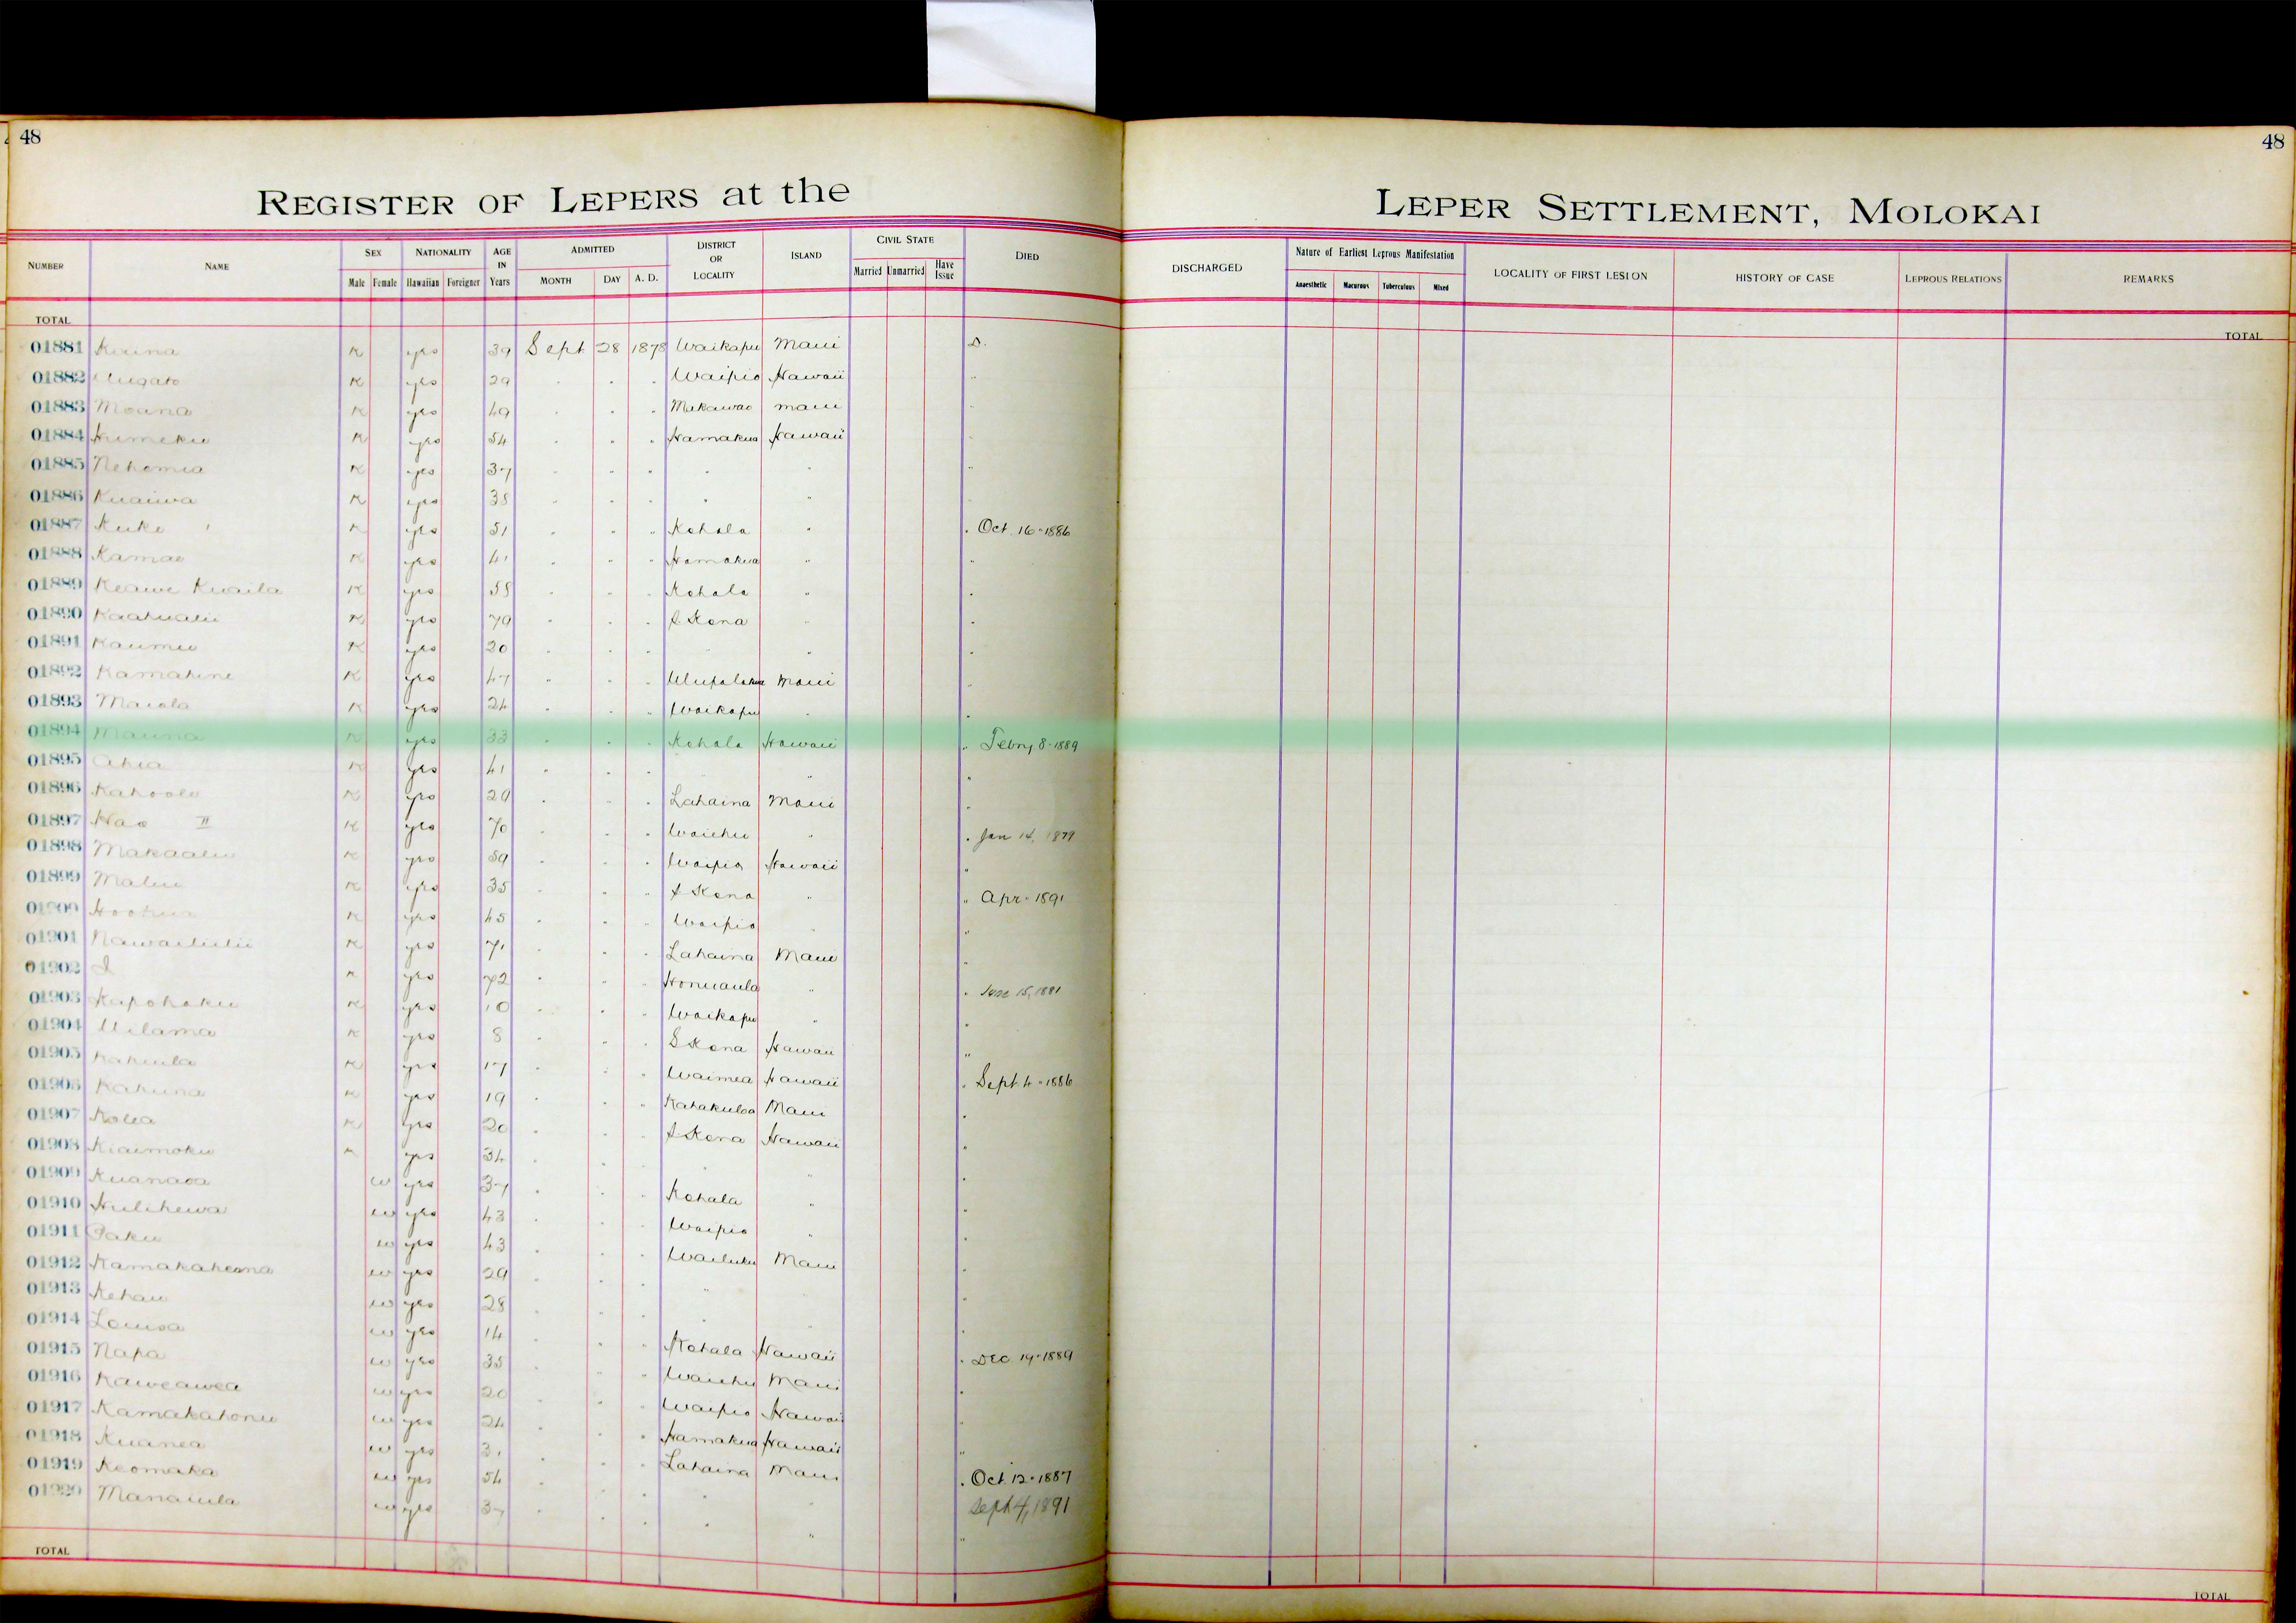 48
48
REGISTER OF LEPERS at the
LEPER SETTLEMENT, MOLOKAI
NUMBER NAME SEX Male Female NATIONALITY Hawaiian Foreigner AGE IN Years ADMITTED MONTH DAY A. D. DISTRICT OR LOCALITY ISLAND CIVIL STATE Married Unmarried Have Issue DIED
DISCHARGED Nature of Earliest Leprous Manifestation Anaesthetic Macurous Tuberculous Mixed LOCALITY OF FIRST LESION HISTORY OF CASE LEPROUS RELATIONS REMARKS
TOTAL
TOTAL
01881 K yes 39 Sept 28 1878 Waikapu Maui D.
01882 K yes 29 " " " Waipio Hawaii "
01883 Moana K yes 49 " " " Makawao Maui "
01884 Humeku K yes 54 " " " Hamakua Hawaii "
01885 Nehemia K yes 37 " " " " " "
01886 Kuaiwa K yes 38 " " " " " "
01887 Kuke K yes 51 " " " Kohala " " Oct. 16 - 1886
01888 Kamao K yes 41 " " " Hamakua " "
01889 Keawe Kuaila K yes 58 " " " Kohala " "
01890 Kaahualii K yes 79 " " " S Kona " "
01891 Kaumu K yes 20 " " " " " "
01892 Kamahine K yes 47 " " " Ulupalakua Maui "
01893 Maiola K yes 24 " " " Waikapu " "
01894 Mauna K yes 33 " " " Kohala Hawaii " Febry 8 - 1889
01895 Ahia K yes 41 " " " " "
01896 Kahoole K yes 29 " " " Lahaina Maui "
01897 Hao II K yes 70 " " " Waiehu " " Jan 14, 1879
01898 Makaalu K yes 59 " " " Waipio Hawaii "
01899 Malu K yes 35 " " " S Kona " " Apr - 1891
01900 Hoohua K yes 45 " " " Waipio " "
01901 Nawailiilii K yes 71 " " " Lahaina Maui "
01902 I K yes 72 " " " Honuaula " " June 15, 1881
01903 Kapohaku K yes 10 " " " Waikapu " "
01904 Wilama K yes 8 " " " S Kona Hawaii "
01905 Kahiula K yes 17 " " " Waimea Hawaii " Sept. 4 - 1886
01906 Kahuna K yes 19 " " " Kahakuloa Maui "
01907 Kolea K yes 20 " " " S Kona Hawaii "
01908 Kiaimoku K yes 34 " " " " "
01909 Kuanaoa w yes 37 " " " Kohala " "
01910 Hulihewa w yes 43 " " " Waipio " "
01911 Paku w yes 43 " " " Wailuku Maui "
01912 w yes 29 " " " " "
01913 Kehau w yes 28 " " " " "
01914 Louisa w yes 14 " " " Kohala Hawaii " Dec. 19 - 1889
01915 Napa w yes 35 " " " Waiehu Maui "
01916 Kaweawea w yes 20 " " " Waipio Hawaii "
01917 Kamakahonu w yes 24 " " " Hamakua Hawaii "
01918 Kuanea w yes 31 " " " Lahaina Maui " Oct 12 - 1887
01919 Keomaka w yes 54 " " " " " Sept 4, 1891
01920 Manaiula w yes 37 " " " " " "
TOTAL
TOTAL